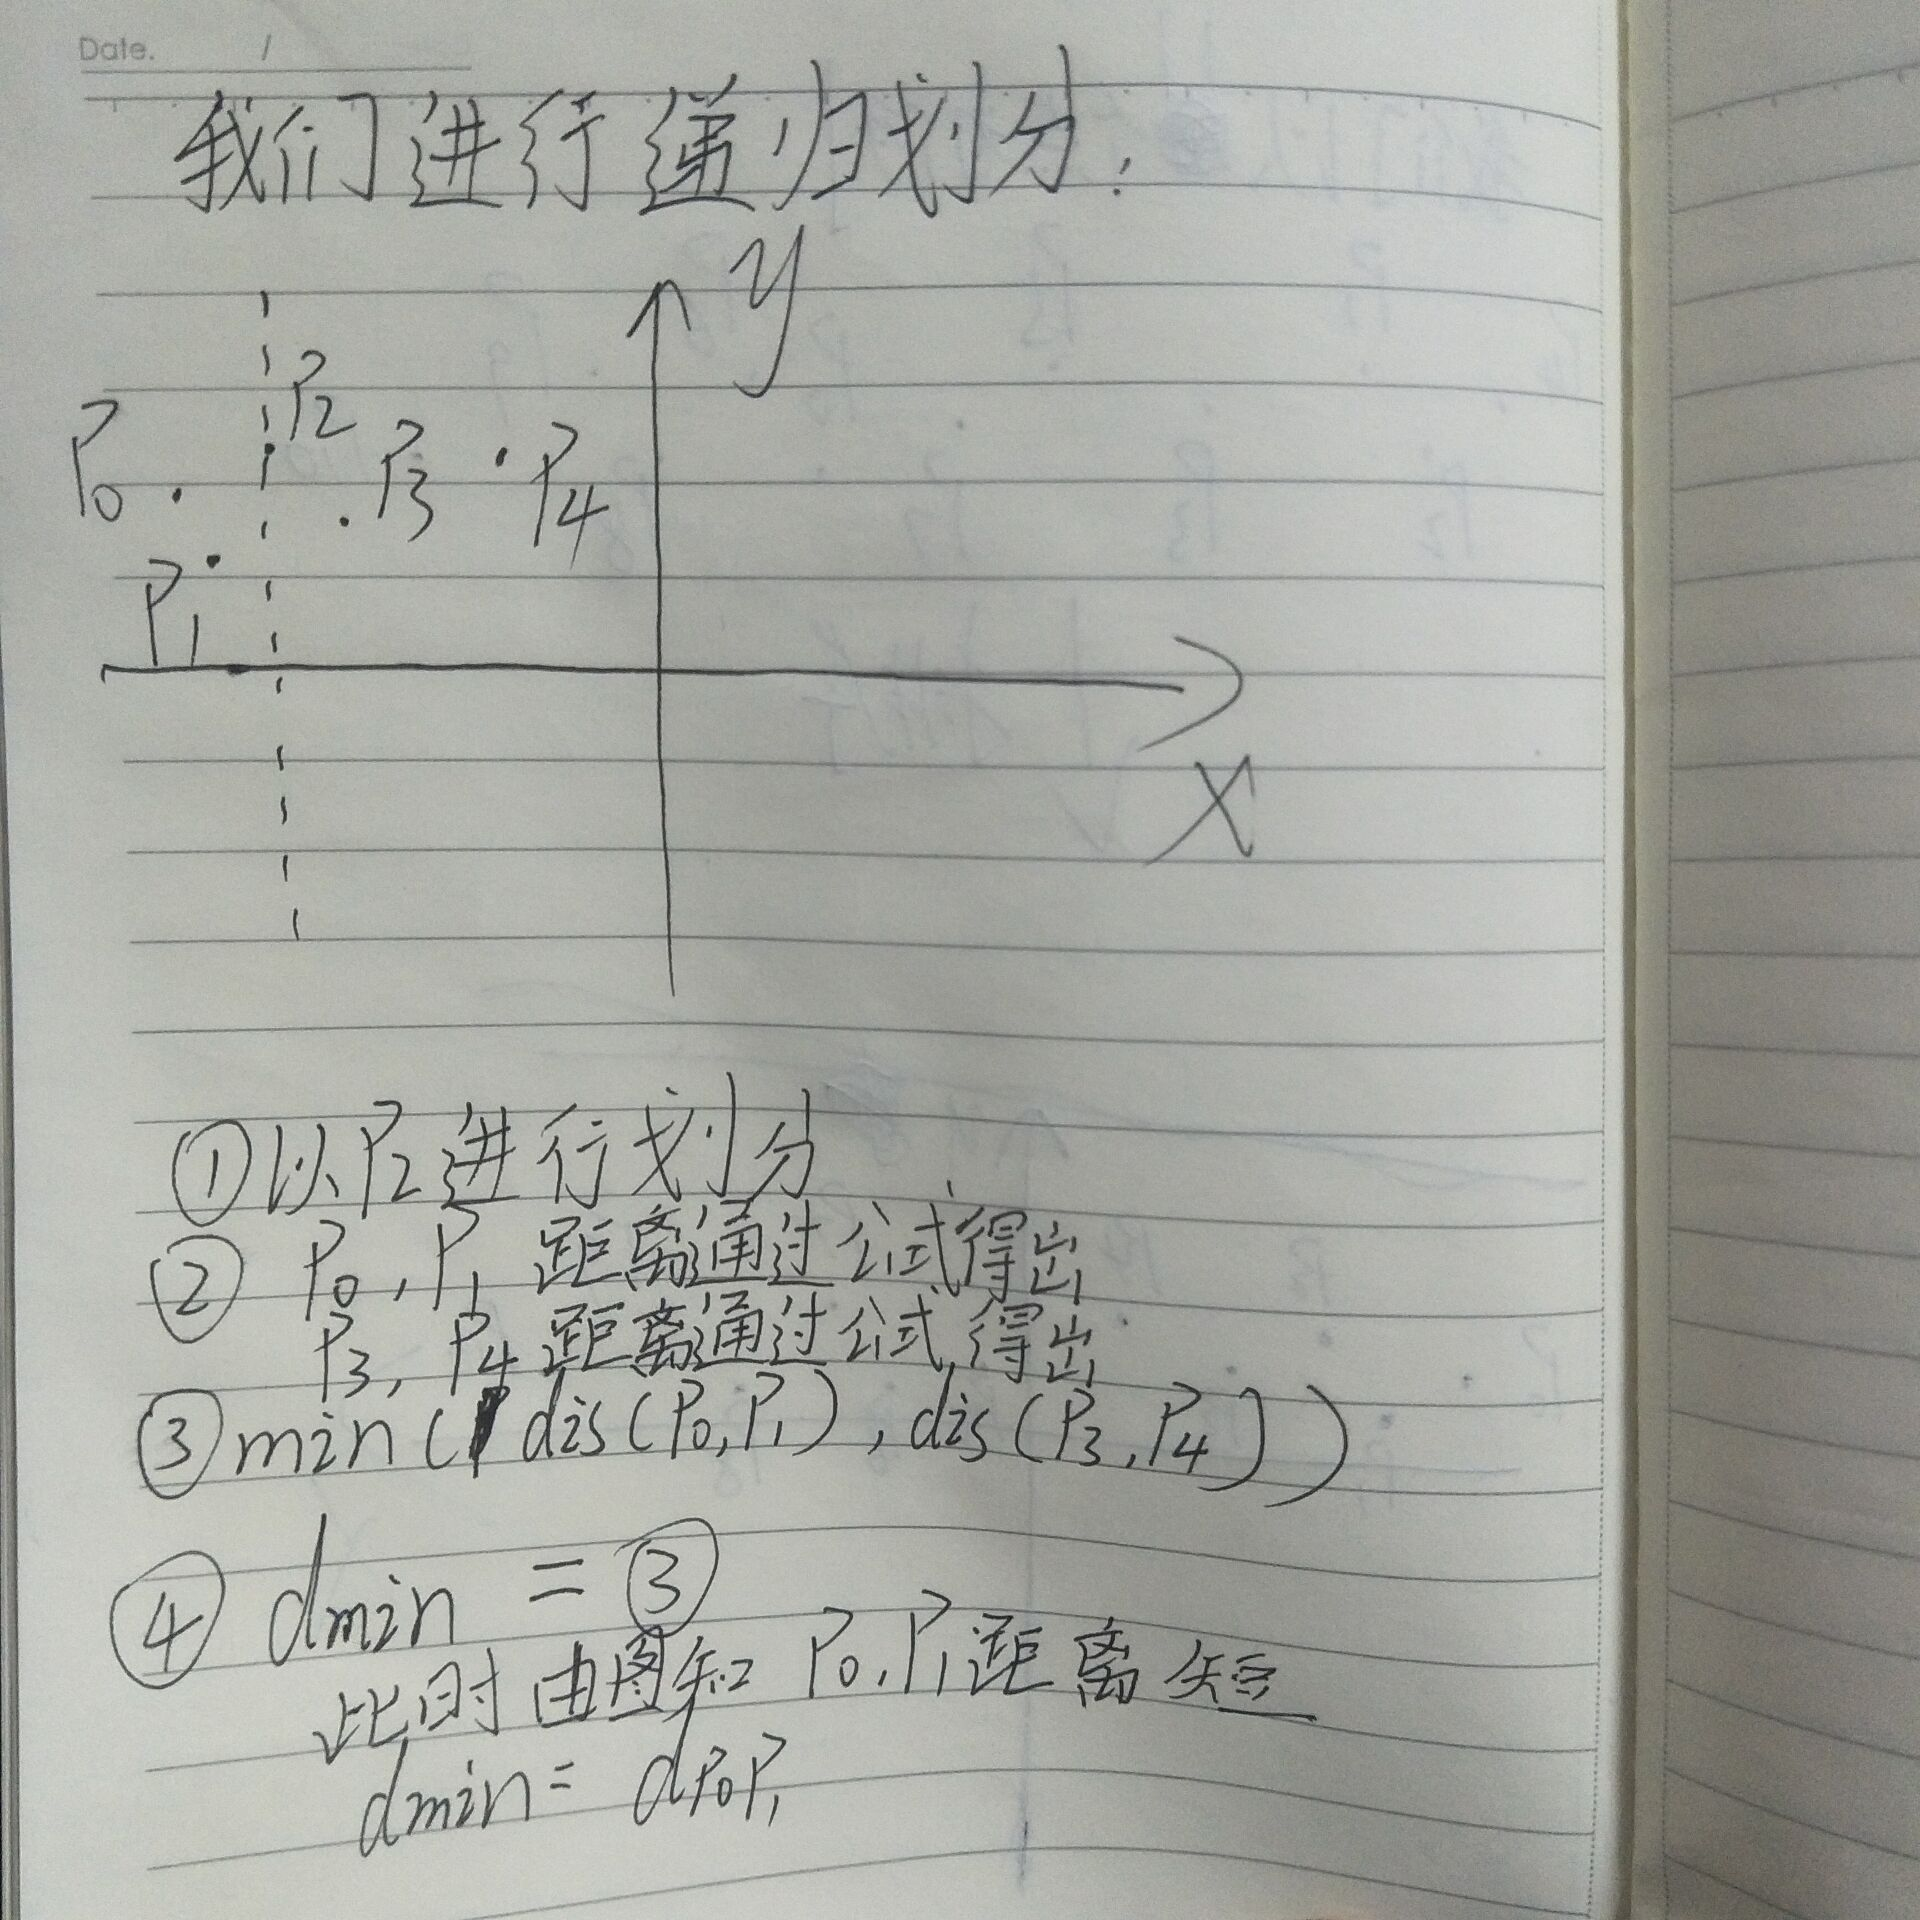 Date. /
我们进行递归划分:
y
P2
P0 P3 P4
P1
X
①以P2进行划分
② P0,P1 距离通过公式得出
P3,P4 距离通过公式得出
③ min(dis(P0,P1),dis(P3,P4))
④ dmin = ③
此时由图知 P0,P1距离短
dmin= dP0P1